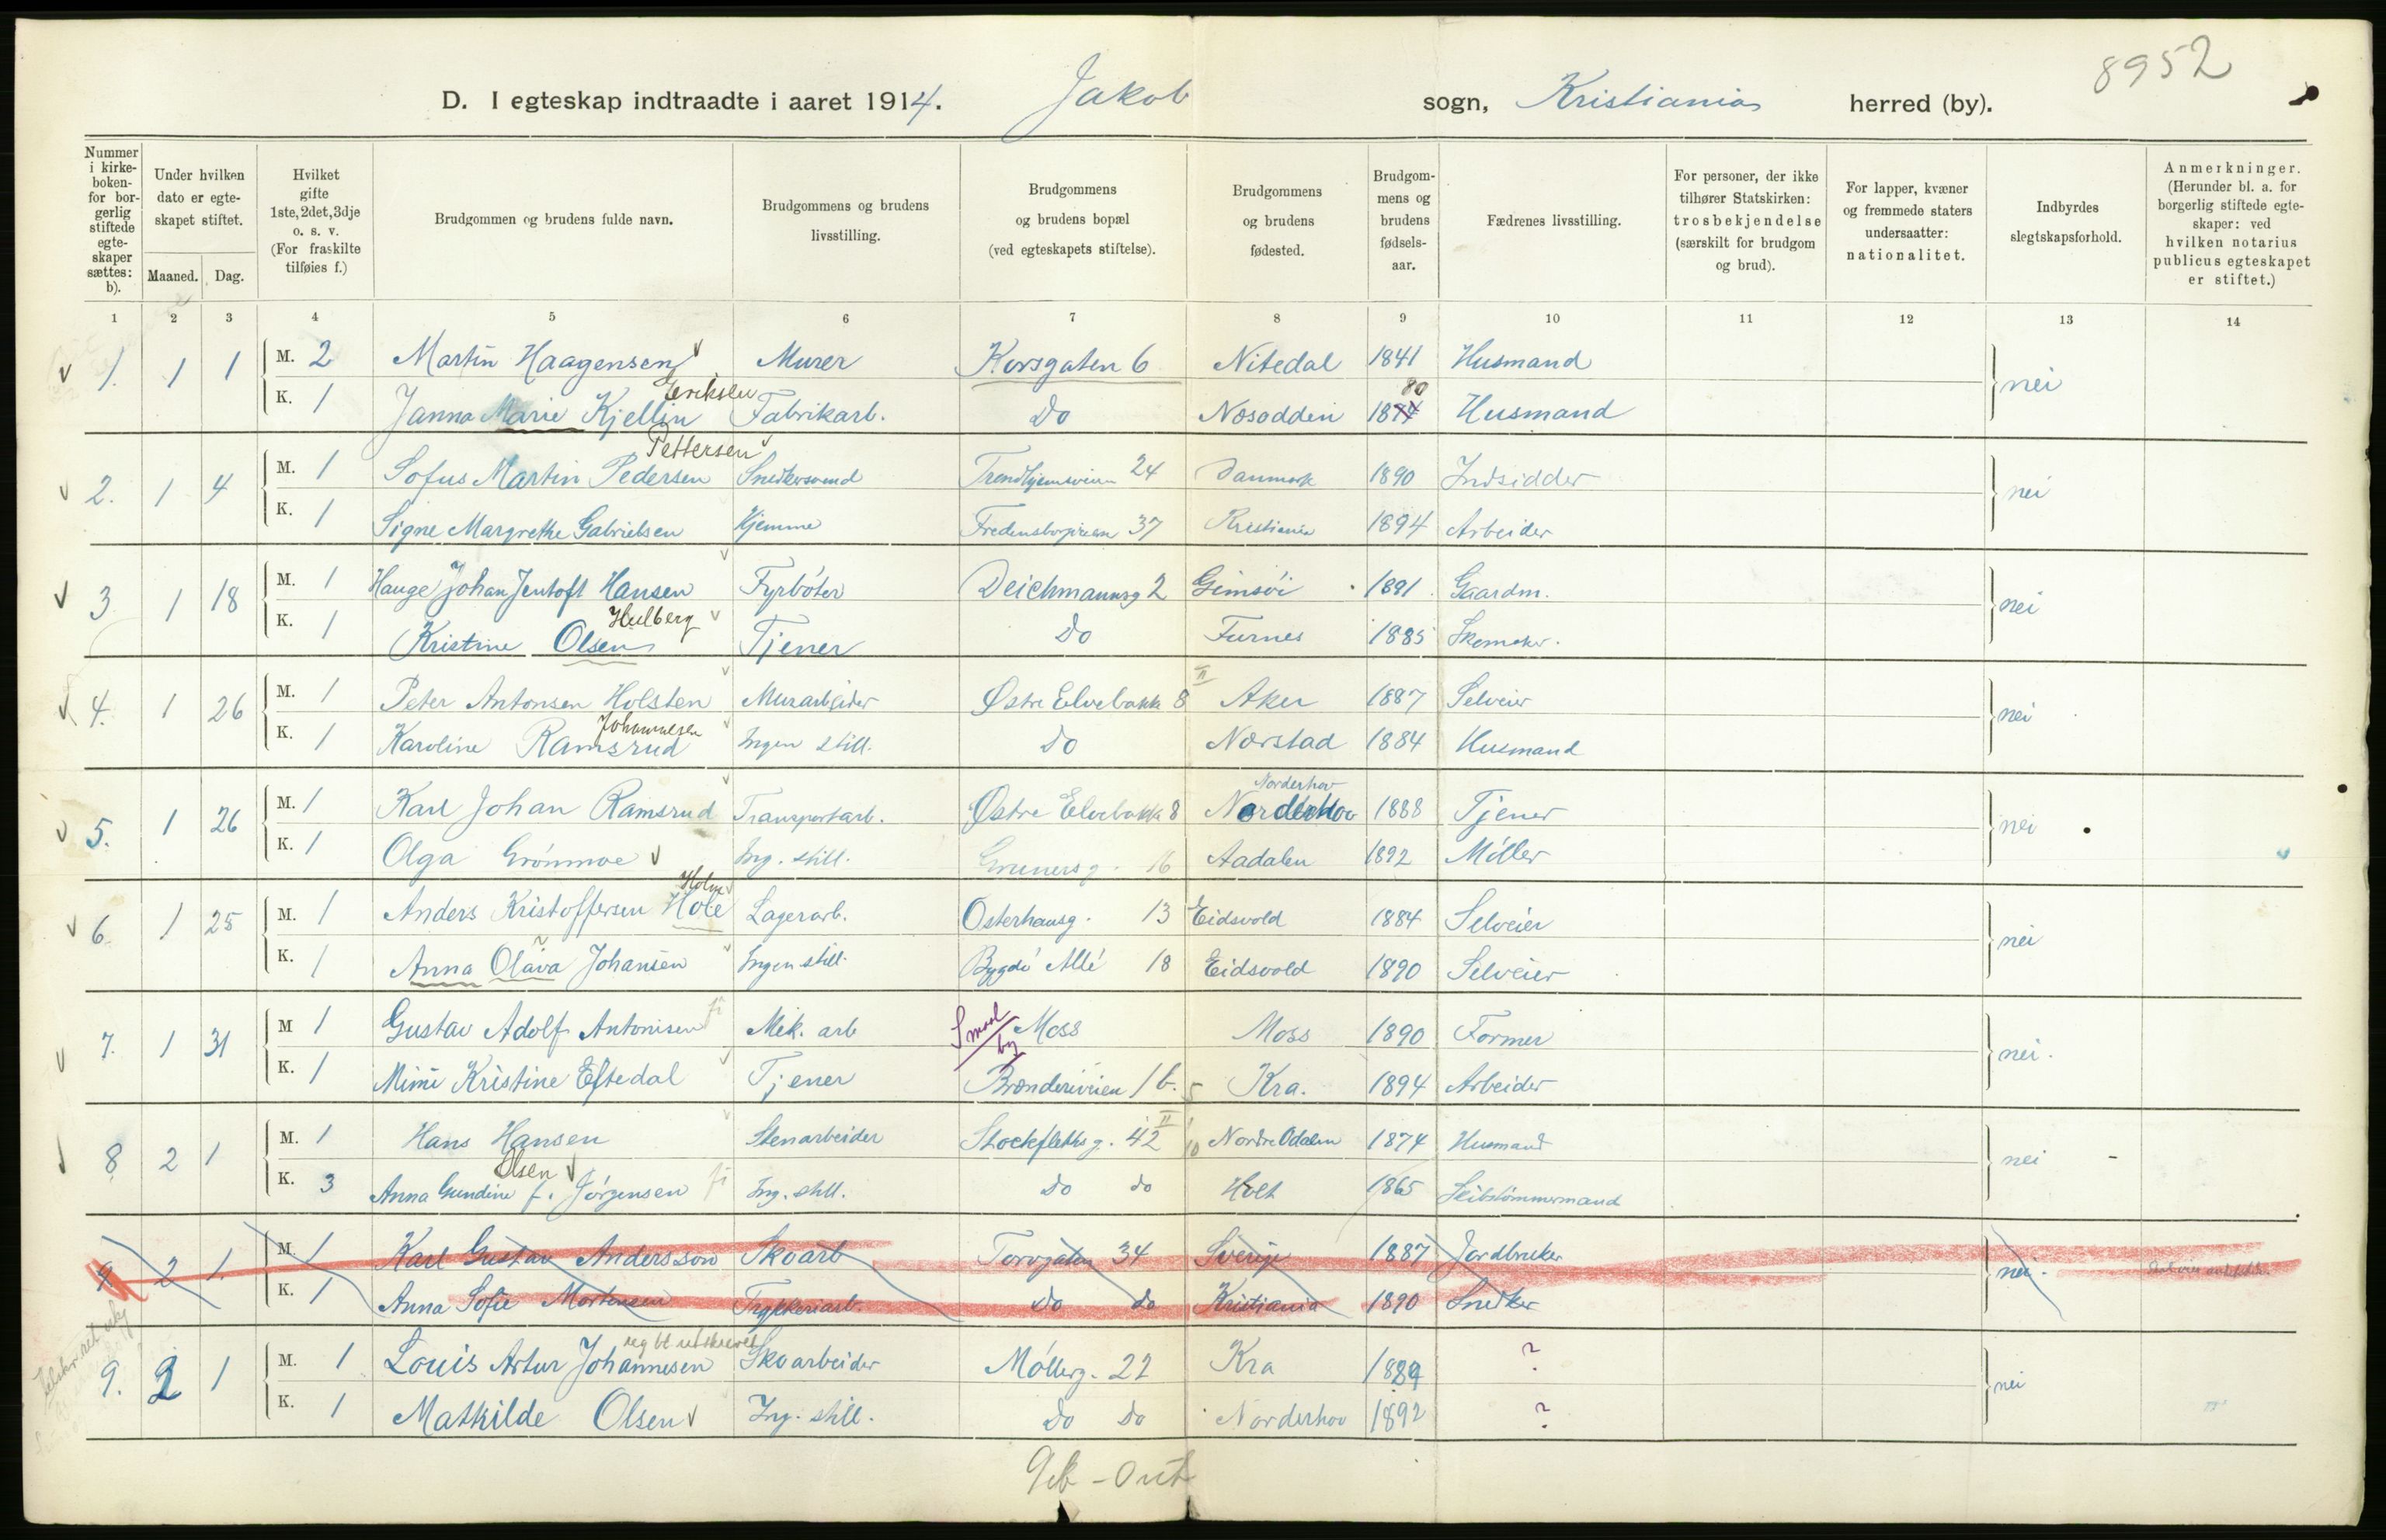 8952
D. I egteskap indtraadte i aaret 1914. Jakob sogn, Kristiania herred (by).
Nummer i kirke-boken- for bor-gerlig stiftede egte-skaper sættes: b).
Under hvilken dato er egte-skapet stiftet.
Maaned. Dag.
Hvilket gifte 1ste, 2det, 3dje o. s. v. (For fraskilte tilføies f.)
Brudgommen og brudens fulde navn.
Brudgommens og brudens livsstilling.
Brudgommens og brudens bopæl (ved egteskapets stiftelse).
Brudgommens og brudens fødested.
Brudgom-mens og brudens fødsels-aar.
Fædrenes livsstilling.
For personer, der ikke tilhører Statskirken: trosbekjendelse (særskilt for brudgom og brud).
For lapper, kvæner og fremmede staters undersaatter: nationalitet.
Indbyrdes slegtskapsforhold.
Anmerkninger. (Herunder bl. a. for borgerlig stiftede egte-skaper: ved hvilken notarius publicus egteskapet er stiftet.)
1 2 3 4 5 6 7 8 9 10 11 12 13 14
1. 1 1 M. 2 Martin Haagensen Murer Korsgaten 6 Nitedal 1841 Husmand nei
Eriksen 80
K. 1 Janna Marie Kjellin Fabrikarb. Do Nesodden 1874 Husmand
Pettersen
2. 1 4 M. 1 Sofus Martin Pedersen Snedkersvend Trondhjemsveien 24 Danmark 1890 Indsidder nei
K. 1 Signe Margrethe Gabrielsen Hjemme Fredensborgveien 37 Kristiania 1894 Arbeider
3 1 18 M. 1 Hauge Johan Jentoft Hansen Fyrbøter Deichmannsg 2 Gimsøi 1891 Gaardm. nei
Hulberg
K. 1 Kristine Olsen Tjener Do Furnes 1885 Skomaker.
II
4. 1 26 M. 1 Peter Antonsen Holsten Murarbeider Østre Elvebakke 8 Aker 1887 Selveier nei
Johannesen
K. 1 Karoline Ramsrud Ingen still. Do Nærstad 1884 Husmand
Norderhov
5. 1 26 M. 1 Karl Johan Ramsrud Transportarb. Østre Elvebakke 8 Norderhov 1888 Tjener nei
K. 1 Olga Grønmoe Ing. still. Grünersg. 16 Aadalen 1892 Møller
Holm
6. 1 25 M. 1 Anders Kristoffersen Hole Lagerarb. Osterhausg. 13 Eidsvold 1884 Selveier nei
K. 1 Anna Olava Johansen Ingen still. Bygdø Allé 18 Eidsvold 1890 Selveier
7. 1 31 M 1 Gustav Adolf Antonisen Mek. arb Smaal by Moss Moss 1890 Former nei.
K. 1 Mimi Kristine Eftedal Tjener Brænderiveien 1 b. 5 Kra. 1894 Arbeider
8 2 1 M. 1 Hans Hansen Stenarbeider Stockflethsg. 42 II 10 Nordre Odalen 1874 Husmand nei -
Olsen
K. 3 Anna Gundine f. Jørgensen Ing. still. Do do Holt 1865 Skibstømmermand
9 2 1. M. 1 Karl Gustav Andersson Skoarb Torvgaten 34 Sverige 1887 Jordbruker nei.
K. 1 Anna Sofie Mortensen Trykkeriarb. Do do Kristiania 1890 Snedker
9. 2 1 M. 1 Louis Artur Johannesen Skoarbeider Møllerg. 22 Kra 1889 ? nei
K. 1 Mathilde Olsen Ing. still. Do Do Norderhov 1892 ?